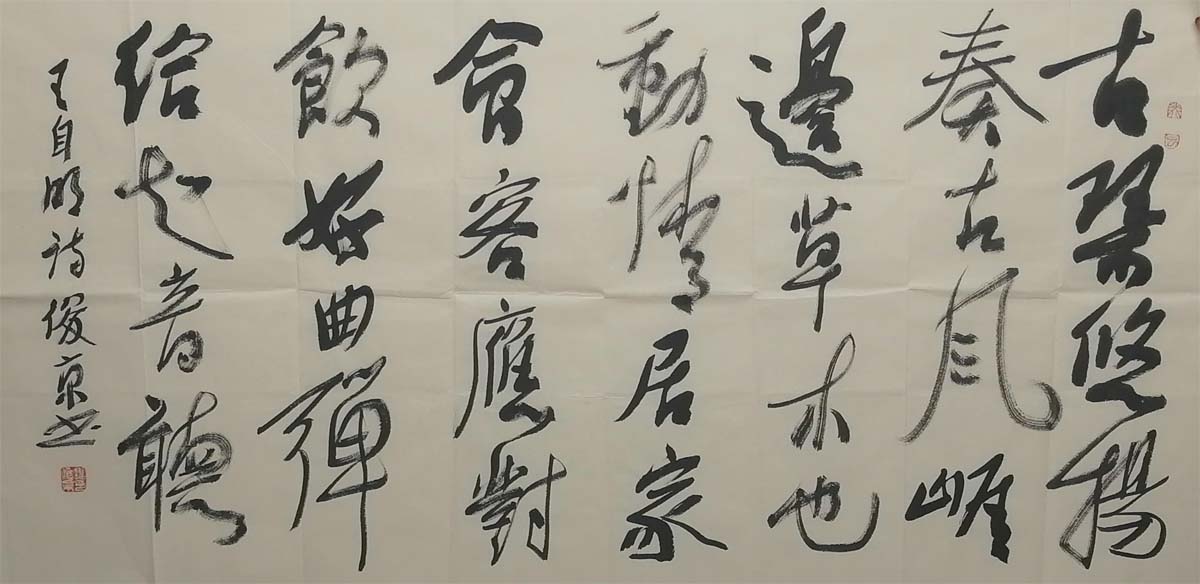 古琴悠揚
奏古風崖
邊草木也
動情居家
會客應對
飲好曲彈
给知音聽
王自明詩俊京書